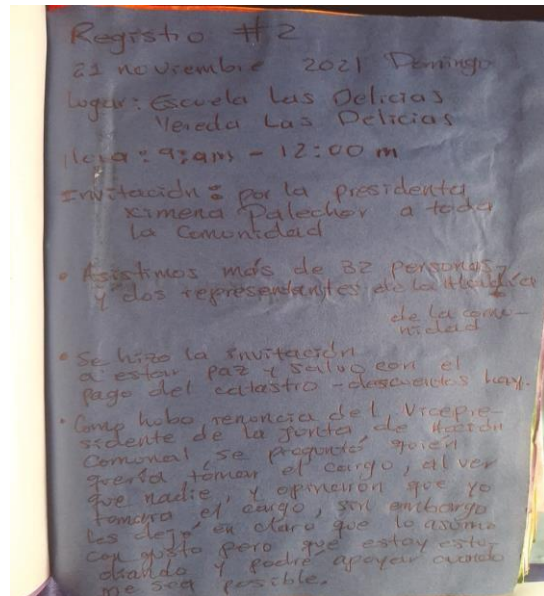 Registro #2
21 noviembre 2021 Domingo
Lugar: Escuela Las Delicias
Vereda Las Delicias
Hora: 9:am - 12:00 m
Invitación: por la presidenta
Ximena Palechor a toda
la Comunidad
• Asistimos más de 32 personas
y dos representantes de la Alcaldía
de la comu-
nidad
• Se hizo la invitación
a estar paz y salvo con el
pago del catastro - descuentos hay.
• Como hubo renuncia del Vicepre-
sidente de la Junta de Acción
Comunal, se preguntó quién
quería tomar el cargo, al ver
que nadie, y opinarón que yo
tomara el cargo, sin embargo
les dejó en claro que lo asumo
con gusto pero que estoy estu-
diando y podré apoyar cuando
me sea posible.